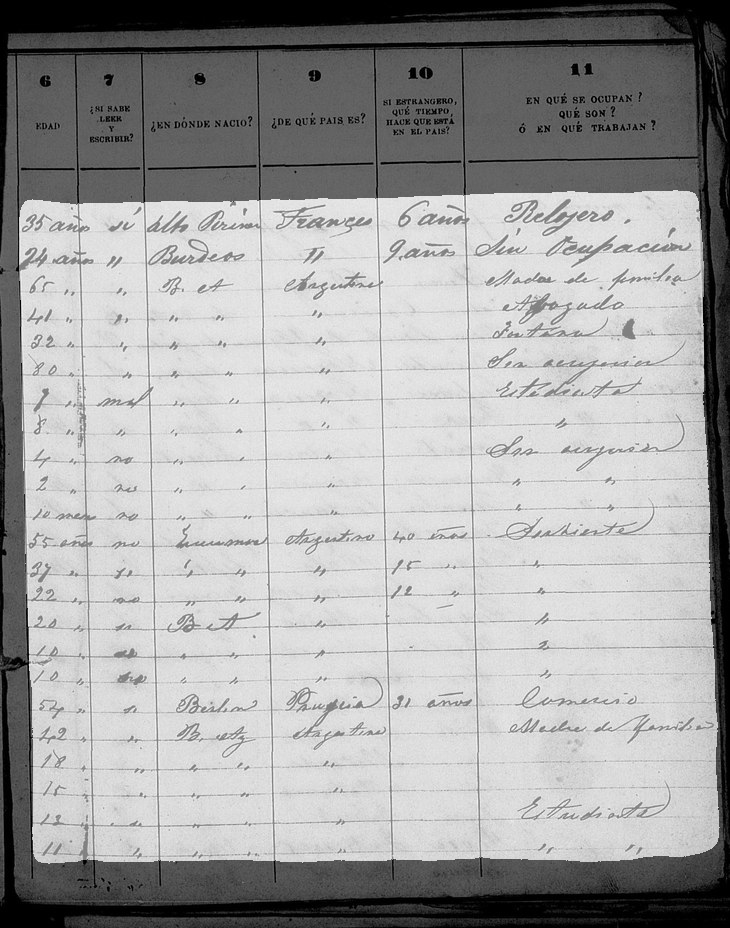 6 7 8 9 10 11
EDAD ¿SI SABE LEER Y ESCRIBIR? ¿EN DÓNDE NACIO? ¿DE QUÉ PAIS ES? SI ESTRANGERO, QUÉ TIEMPO HACE QUE ESTÁ EN EL PAIS? EN QUÉ SE OCUPAN? QUÉ SON? Ó EN QUÉ TRABAJAN?
35 años sí Alto Frances 6 años Relojero.
24 años " Burdeos " 9 años Sin Ocupación
65 " " B. A Argentina Madre de familia
41 " " " " " Abogado
32 " " " " "
30 " " " " " Sin ocupacion
9 " mal " " " Estudiante
8 " " " " " "
4 " no " " " Sin ocupacion
2 " no " " " " "
10 mes no " " "
55 años no Argentino 40 años Sirviente
37 " si " " " 15 " "
22 " no " " " 12 " "
20 " si B A " "
10 " " " " "
10 " no " " " "
54 " si Berlin Prusia 31 años Comercio
42 " " B. A Argentina Madre de familia
18 " " " "
15 " " " "
12 " si " " " Estudiante
11 " " " " " " "